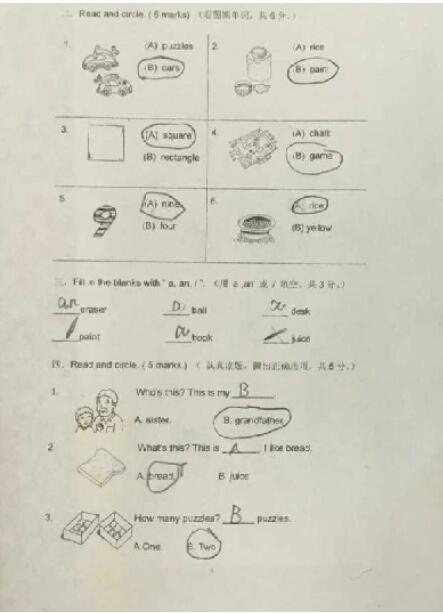 二. Read and circle. ( 6 marks) (看图圈单词，共6分。)
1. (A) puzzles 2. (A) rice
(B) cars (B) paint
3. (A) square 4. (A) chalk
(B) rectangle (B) game
5. (A) nine 6. (A) rice
(B) four (B) yellow
三. Fill in the blanks with " a, an, / ". (用 a ,an 或 / 填空，共3分。)
an eraser a ball a desk
/ paint a book / juice
四. Read and circle. ( 5 marks.) ( 认真读题，圈出正确选项，共5分。)
1. Who's this? This is my B .
A. sister. B. grandfather.
2. What's this? This is A I like bread.
A. bread. B. juice
3. How many puzzles? B puzzles.
A. One. B. Two